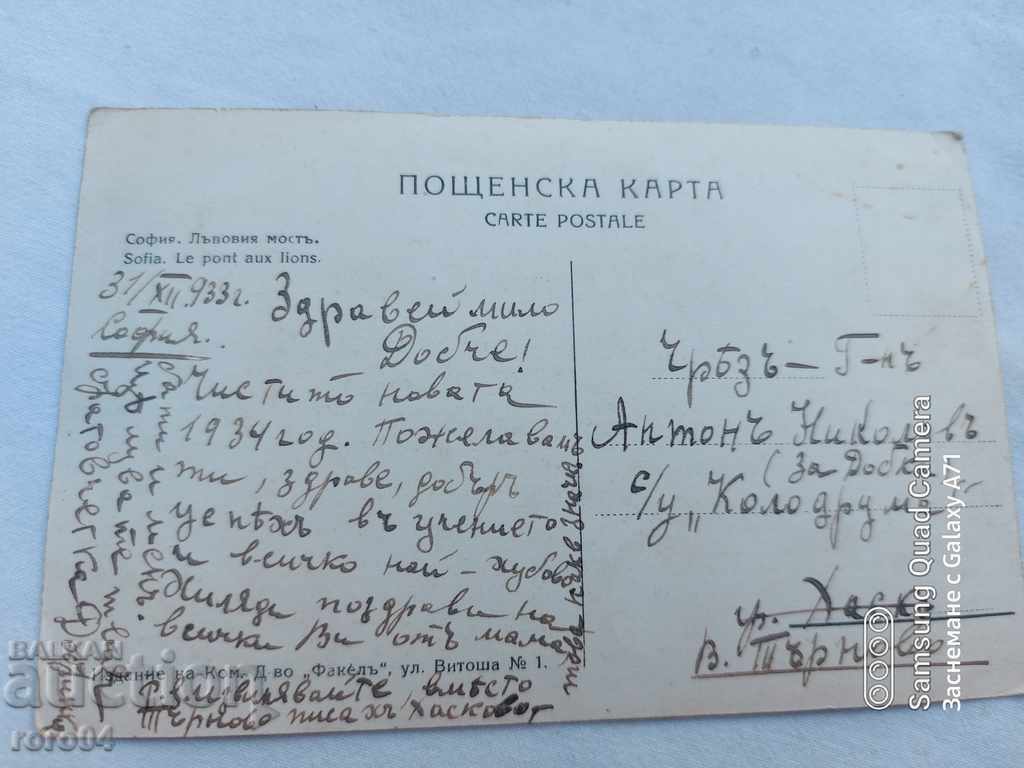 ПОЩЕНСКА КАРТА
CARTE POSTALE
София. Лъвовия мостъ.
Sofia. Le pont aux lions.
31/XII.933г.
София.
Здравей мило
Добче!
Чистито новата
1934 год. Пожелавамъ
ти, здраве, добъръ
успѣхъ въ учението
и всичко най-хубаво
Хиляди поздрави на
всички Ви отъ мама
Издание на Ком. Д-во "Факелъ", ул. Витоша № 1.
Извинявайте, вмѣсто
Търново писахъ Хасково
това
значи
и менъ
Чрѣзъ - Г-нъ
Антонъ Николовъ
(за Добче
с/у "Колодрумъ"
гр. Хаско
В. Търново
Samsung Quad Camera
Заснемане с Galaxy A71
BALKAN
auction
roro04